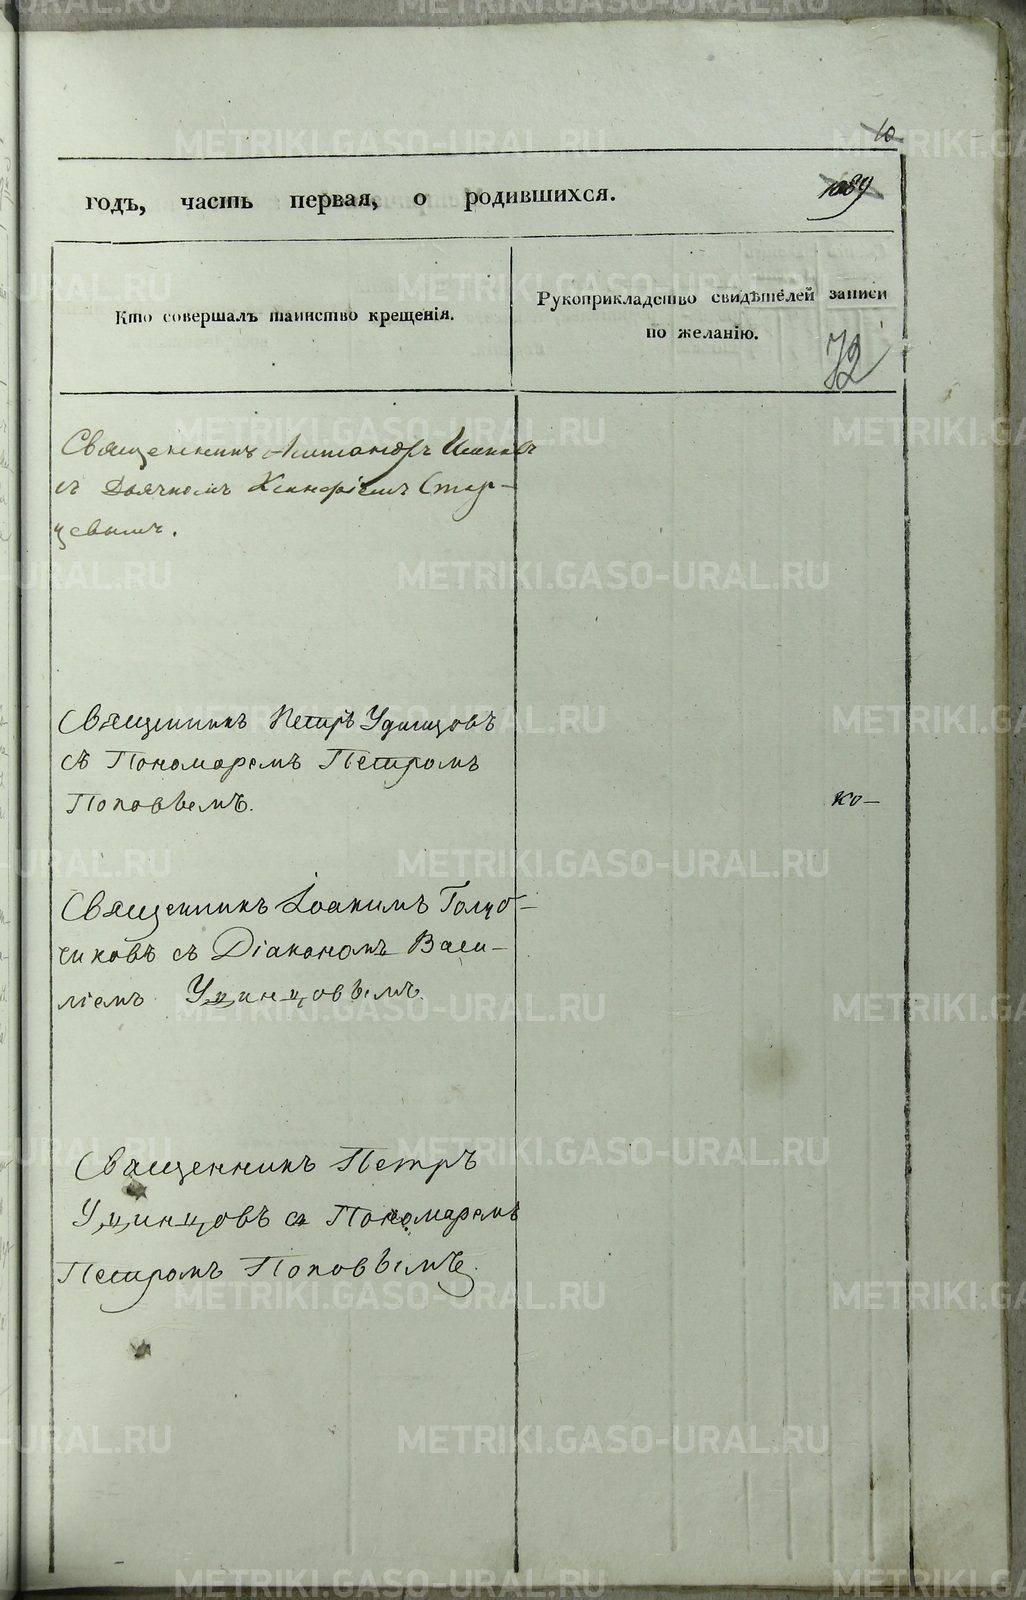 10
годъ, часть первая, о родившихся.
1089
Кто совершалъ таинство крещенія.
Рукоприкладство свидѣтелей записи
по желанію.
72
Священникъ
съ Дьячкомъ Стар-
цевымъ.
Священникъ Петръ Удинцовъ
съ Пономаремъ Петромъ
Поповымъ.
ко—
Священникъ Іоакимъ
съ Діакономъ Васи-
ліемъ Удинцовымъ.
Священникъ Петръ
Удинцовъ съ Пономаремъ
Петромъ Поповымъ.
METRIKI.GASO-URAL.RU